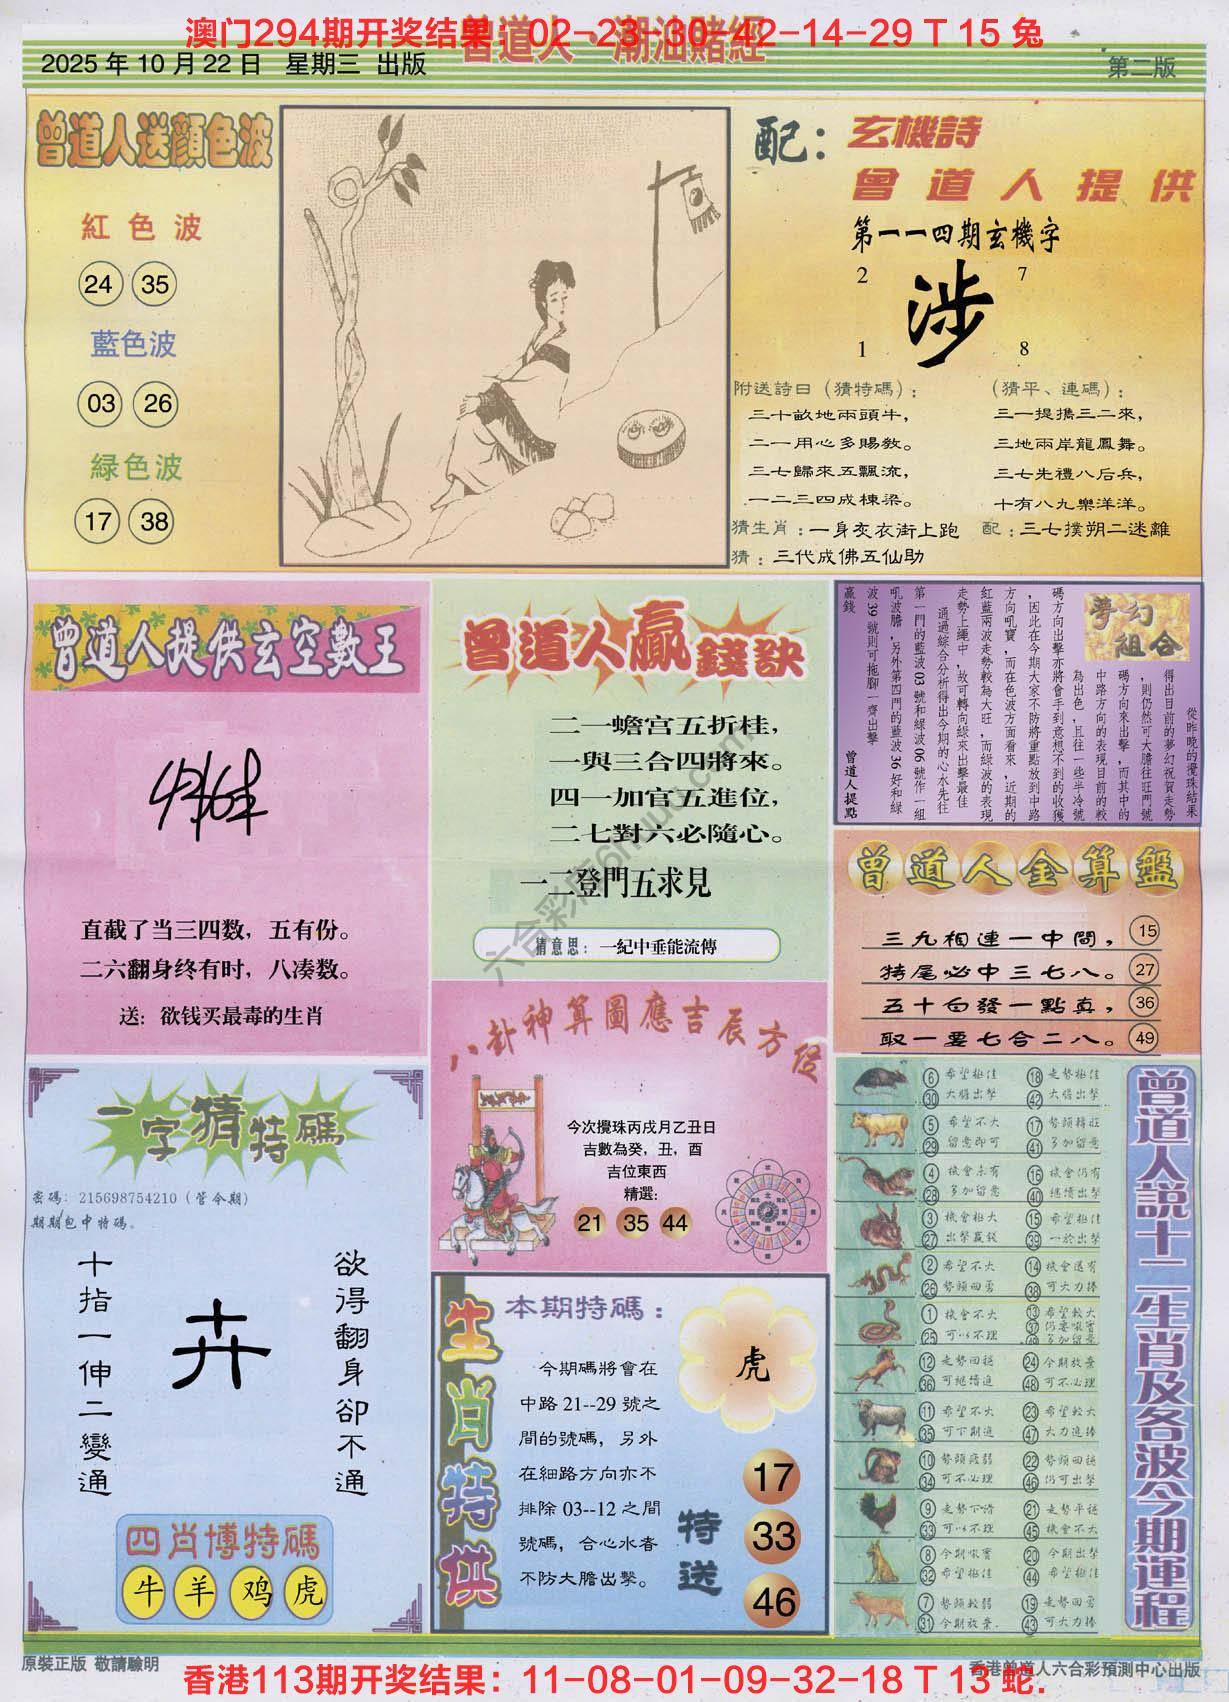 澳门294期开奖结果：02-23-30-42-14-29 T 15 兔
曾道人·潮油賭經
2025 年 10 月 22 日 星期三 出版
第二版
曾道人送顏色波
紅色波
24 35
藍色波
03 26
緑色波
17 38
配：玄機詩
曾道人提供
第一一四期玄機字
2 7
涉
1 8
附送詩日（猜特碼）：
三十畝地兩頭牛，
二一用心多賜教。
三七歸來五飄流，
一二三四成棟梁。
（猜平、連碼）：
三一提攜三二來，
三地兩岸龍鳳舞。
三七先禮八后兵，
十有八九樂洋洋。
猜生肖：一身变衣街上跑
配：三七撲朔二迷離
猜：三代成佛五仙助
曾道人提供玄空數王
直截了当三四数，五有份。
二六翻身终有时，八凑数。
送：欲钱买最毒的生肖
曾道人贏錢訣
二一蟾宫五折桂，
一與三合四將來。
四一加官五進位，
二七對六必隨心。
一二登門五求見
猜意思：一紀中垂能流傳
夢幻組合
從昨晚的攪珠結果
得出目前的夢幻祝賀走勢
，則仍然可大膽往旺門號
碼方向來出擊，而其中的
中路方向的表現目前的較
為出色，且往一些半冷號
碼方向出擊亦將會手到意想不到的收獲
，因此在今期大家不防將重點放到中路
方向吼寶，而在色波方面看來，近期的
紅藍兩波走勢較為大旺，而綠波的表現
走勢上繩中，故可轉向綠來出擊最佳
通過綜合分析得出今期的心水先往
第一門的藍波 03 號和綠波 06 號作一組
吼波膽，另外第四門的藍波 36 好和綠
波 39 號則可拖腳一齊出擊
贏錢
曾道人提點
曾道人金算盤
三九相連一中問， 15
特尾必中三七八。 27
五十白發一點真， 36
取一要七合二八。 49
八卦神算圖應吉辰方位
今次攪珠丙戌月乙丑日
吉數為癸，丑，酉
吉位東西
精選：
21 35 44
一字猜特碼
密碼：215698754210（管今期）
期期包中特碼。
十指一伸二變通
卉
欲得翻身卻不通
四肖博特碼
牛 羊 鸡 虎
生肖特供
本期特碼：
虎
今期碼將會在
中路 21--29 號之
間的號碼，另外
在細路方向亦不
排除 03--12 之間
號碼，合心水者
不防大膽出擊。
特送
17
33
46
曾道人説十二生肖及各波今期運程
6 希望極佳 18 走勢極佳
30 大膽出擊 42 大膽出擊
5 希望不大 17 勢頭轉旺
29 留意即可 41 多加留意
4 機會未有 16 機會仍有
28 多加留意 40 繼續出擊
3 機會極大 15 希望極佳
27 出擊贏錢 39 一於出擊
2 希望不大 14 機會還有
26 勢頭回勇 38 可大力捧
1 機會不大 13 希望較大
25 可以不理 37 仍要吼寶
49 多加留意
12 走勢回穩 24 今期放棄
36 可繼續追 48 可不必理
11 希望不大 23 希望較大
35 可下期追 47 大力追捧
10 勢頭疲弱 22 勢頭回穩
34 可不必理 46 仍可出擊
9 走勢下滑 21 走勢平穩
33 可以不理 45 機會不大
8 今期吼寶 20 今期出擊
32 希望極佳 44 希望極佳
7 勢頭較弱 19 走勢回勇
31 今期放棄 43 可大力捧
六合彩库6huu.com
原裝正版 敬請驗明
香港曾道人六合彩預測中心出版
香港113期开奖结果：11-08-01-09-32-18 T 13 蛇.